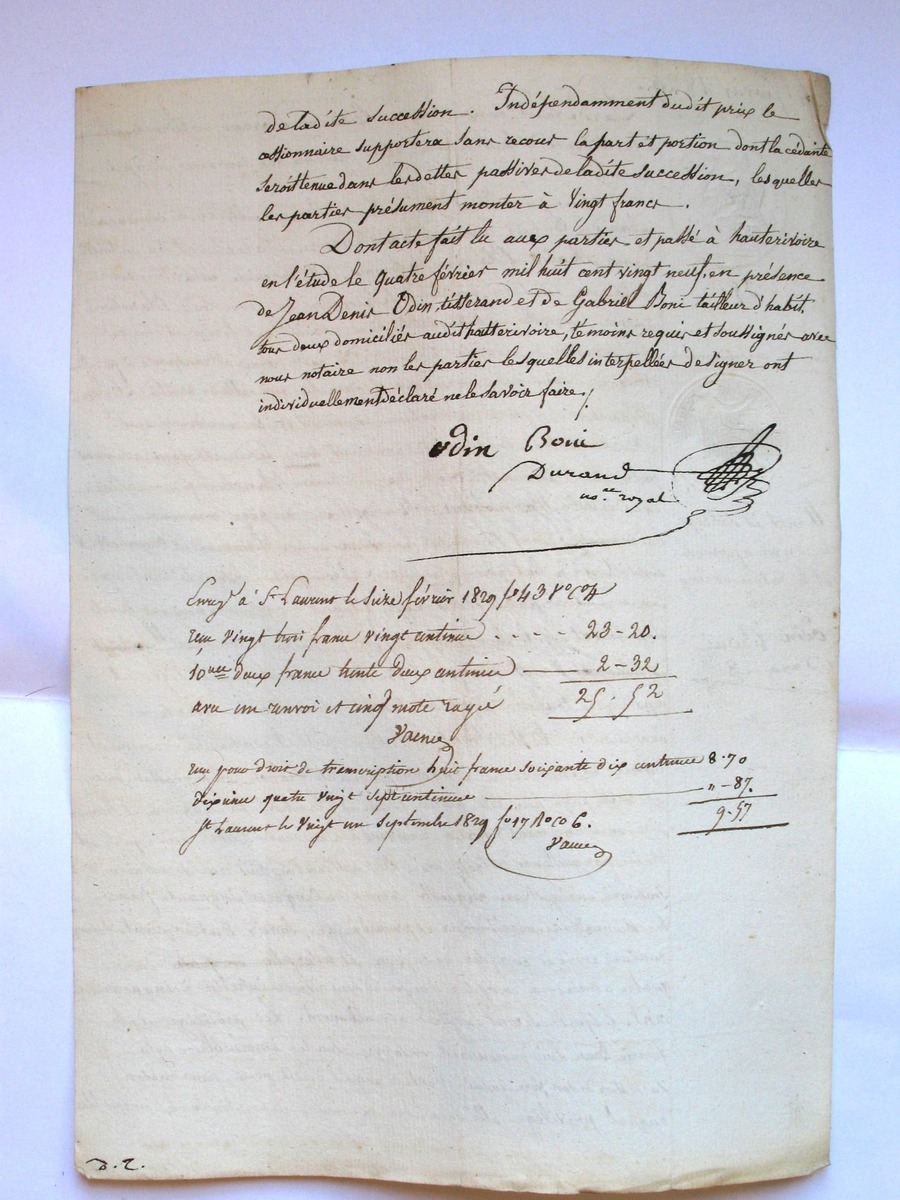 de ladite succession. Indépendamment dudit prix le
cessionnaire supportera sans recour la part et portion dont la cédante
seroit tenue dans les dettes passives de ladite succession, lesquelles
les parties présument monter à vingt francs.
Dont acte fait lu aux parties et passé à hauterivoire
en l'étude le quatre février mil huit cent vingt neuf, en présence
de Jean Denis Odin, tisserand et de Gabriel Boni tailleur d'habit,
tous deux domiciliés audit hauterivoire, témoins requis et soussignés avec
nous notaire non les parties lesquelles interpellées de signer ont
individuellement déclaré ne le savoir faire./
odin Boni
Durand
no.re royal
Enregé à St Laurent le Seize février 1829 fo 43 Vo Co 4
reçu vingt trois francs vingt centimes . . . . 23-20.
10eme deux francs trente deux centimes — 2-32
avec un renvoi et cinq mots rayés 25.52
reçu pour droit de transcription huit francs soixante dix centimes 8.70
dixième quatre vingt sept centimes — " -87.
St Laurent le Vingt un Septembre 1829 fo 17 Ro Co 6. 9.57